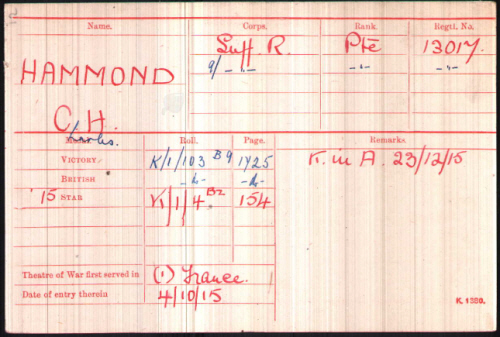 Name. Corps. Rank. Regtl. No.
HAMMOND Suff. R. Pte 13017.
9/ -"- -"-
C.H.
Charles.
Medal. Roll. Page. Remarks.
VICTORY K/1/103 B9 1425 K. in A. 23/12/15
BRITISH -"- -"-
'15 STAR K/1/4 B2 154
Theatre of War first served in (1) France.
Date of entry therein 4/10/15
K. 1380.